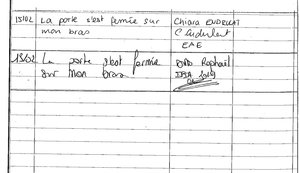 13/02 La porte s'est fermée sur Chiara
mon bras
EAE
13/02 La porte s'est fermée Raphaël
sur mon bras